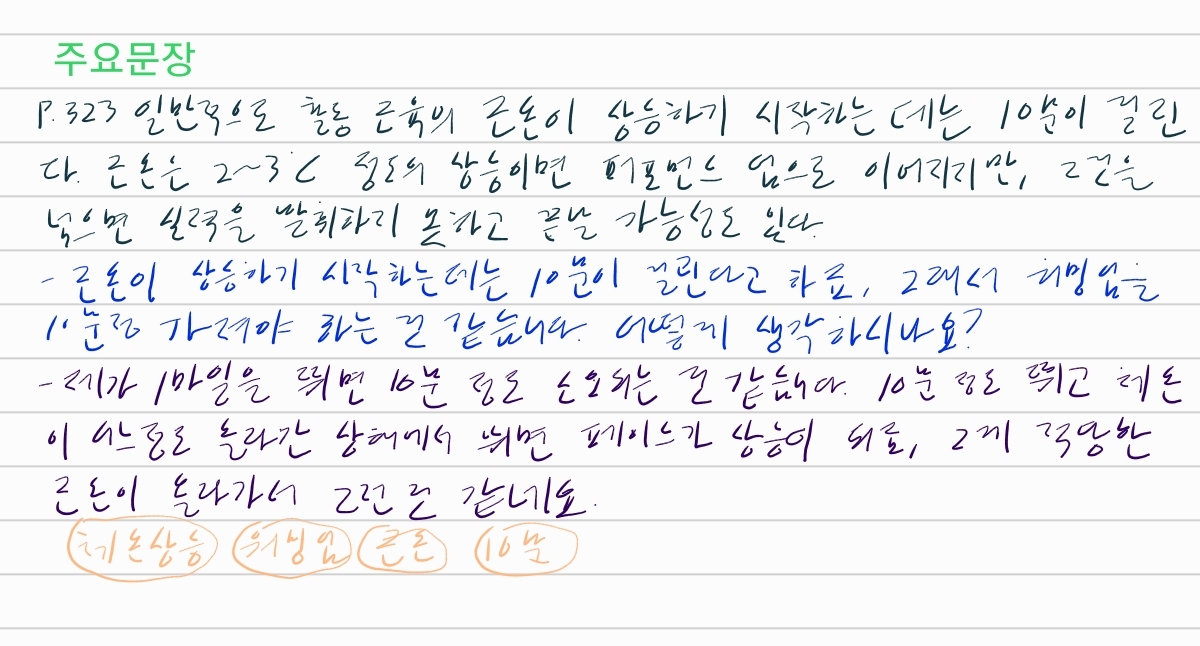 주요문장
P.323 일반적으로 활동 근육의 근온이 상승하기 시작하는 데는 10분이 걸린
다. 근온은 2~3℃ 정도의 상승이면 퍼포먼스 업으로 이어지지만, 그것을
넘으면 실력을 발휘하지 못하고 끝날 가능성도 있다.
- 근온이 상승하기 시작하는데는 10분이 걸린다고 하죠, 그래서 워밍업을
10분정도 가져야 하는 것 같습니다. 어떻게 생각하시나요?
- 제가 1마일을 뛰면 10분 정도 소요되는 것 같습니다. 10분 정도 뛰고 체온
이 어느정도 올라간 상태에서 뛰면 페이스가 상승이 되죠, 그게 적당한
근온이 올라가서 그런 것 같네요.
체온상승 워밍업 근온 10분